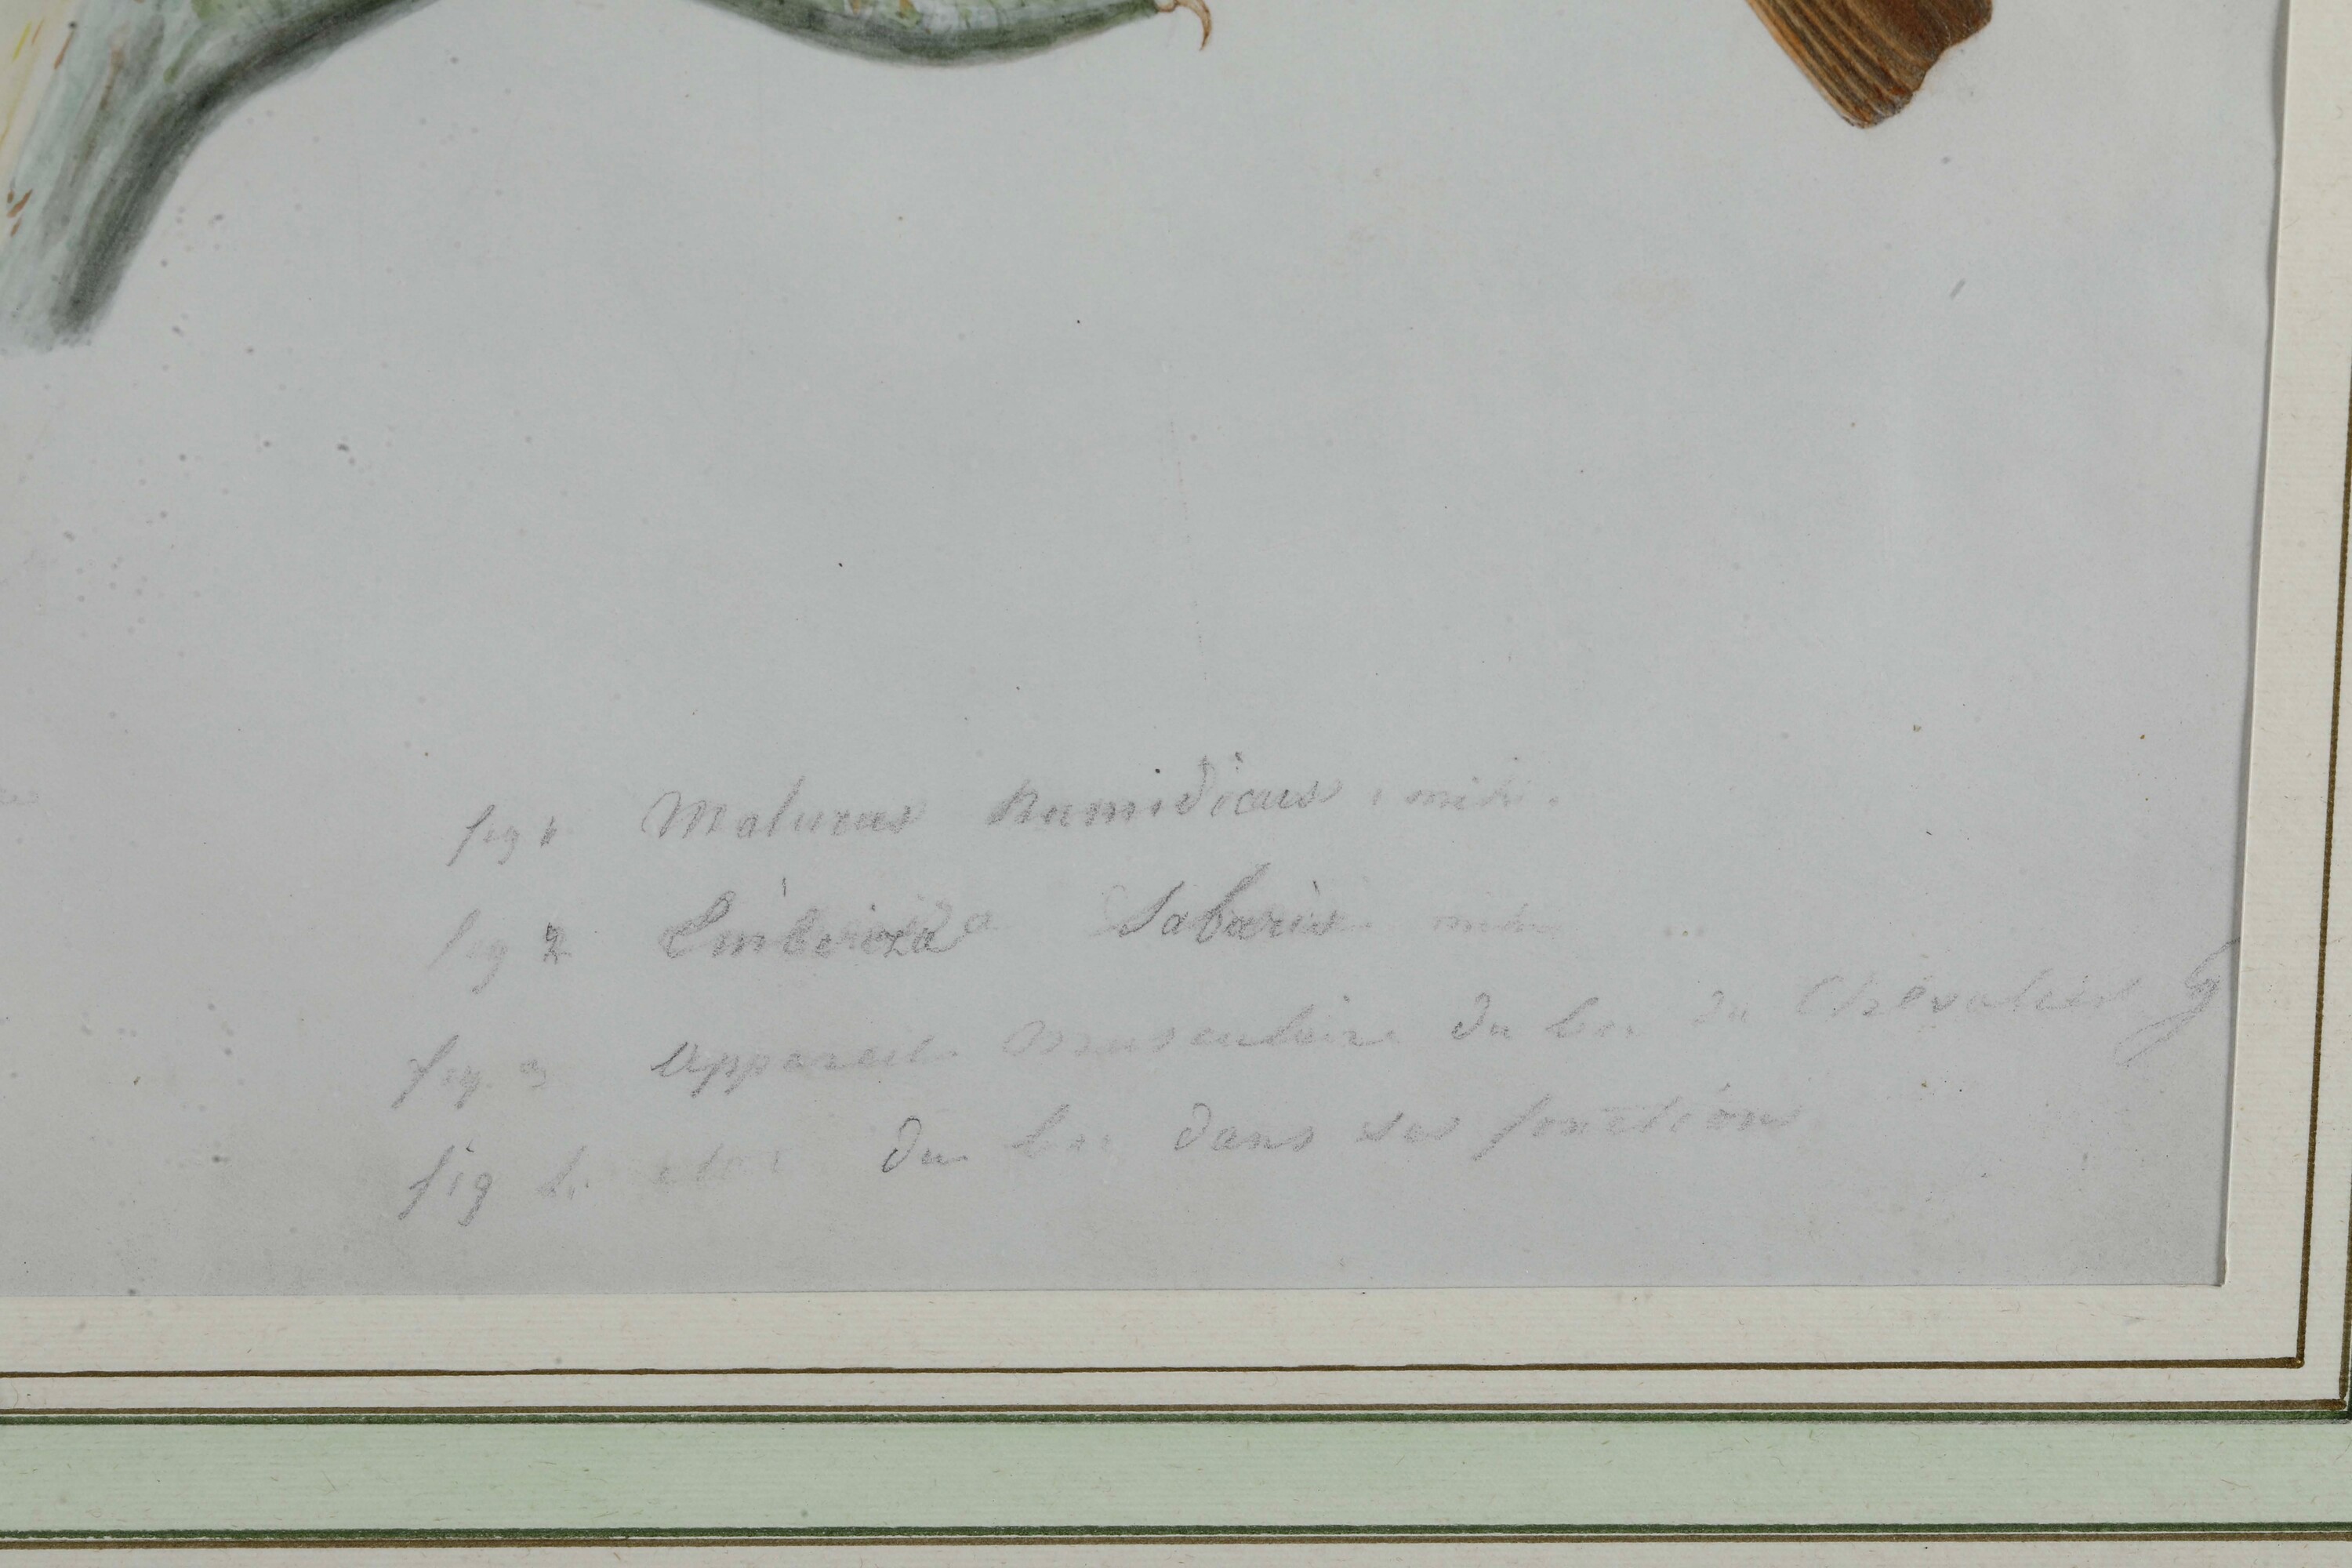 fig 1 Malurus Numidicus, mihi.
fig 2 Emberiza Saharis mihi ...
fig. 3 Appareil Musculaire du bec du Chevalier G
fig du bec dans ses fonctions